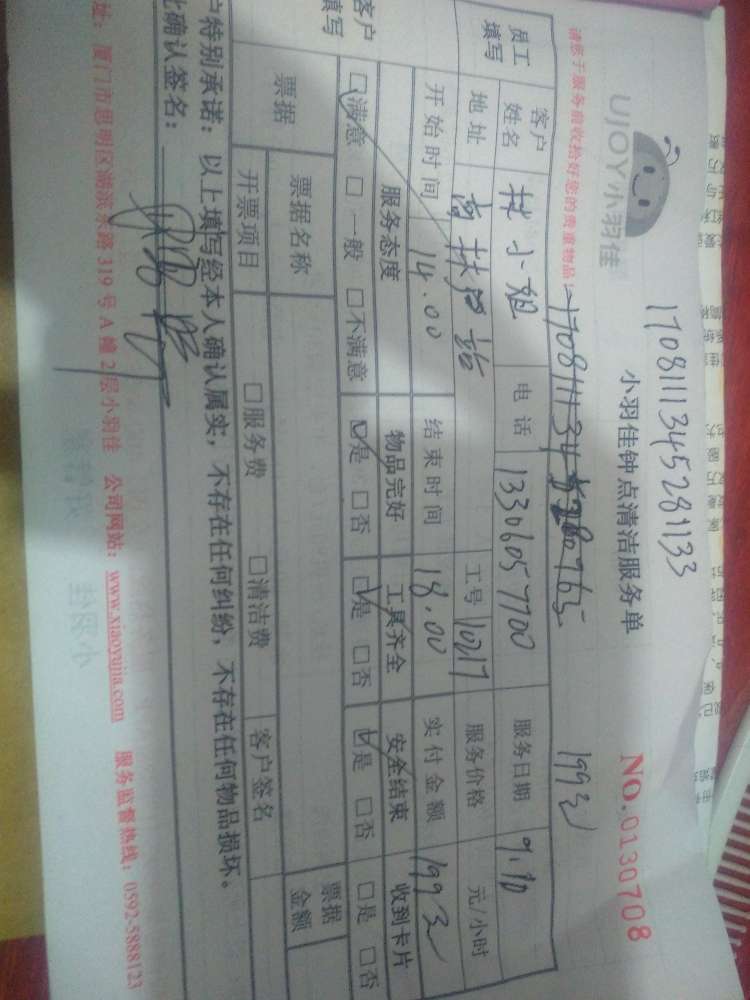 170811134528133
UJOY小羽佳
小羽佳钟点清洁服务单
NO.0130708
请您于服务前收拾好您的贵重物品!
199元
员工填写
客户姓名 林小姐 电话 13306057700 服务日期 9.10
地址 工号 10217 服务价格 元/小时
开始时间 14.00 结束时间 18.00 实付金额 199元
客户填写
服务态度 物品完好 工具齐全 安全结束 收到卡片
☑满意 □一般 □不满意 ☑是 □否 ☑是 □否 ☑是 □否 □是 □否
票据 票据名称 票据金额
开票项目 □服务费 □清洁费 客户签名
户特别承诺：以上填写经本人确认属实，不存在任何纠纷，不存在任何物品损坏。
此确认签名：
址：厦门市思明区湖滨东路319号A幢2层小羽佳 公司网站：www.xiaoyujia.com 服务监督热线：0592-5888123